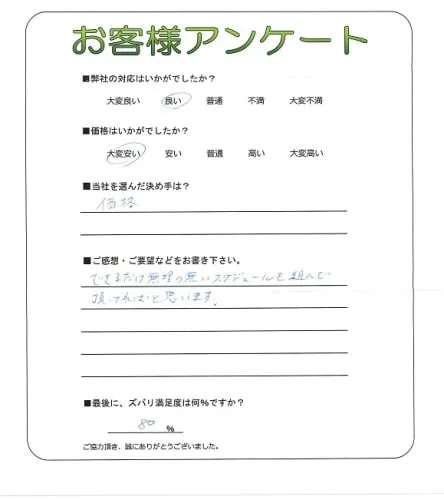 お客様アンケート
■弊社の対応はいかがでしたか?
大変良い 良い 普通 不満 大変不満
■価格はいかがでしたか?
大変安い 安い 普通 高い 大変高い
■当社を選んだ決め手は?
価格
■ご感想・ご要望などをお書き下さい。
できるだけ無理の無いスケジュールを組んで
頂ければと思います。
■最後に、ズバリ満足度は何%ですか?
80 %
ご協力頂き、誠にありがとうございました。